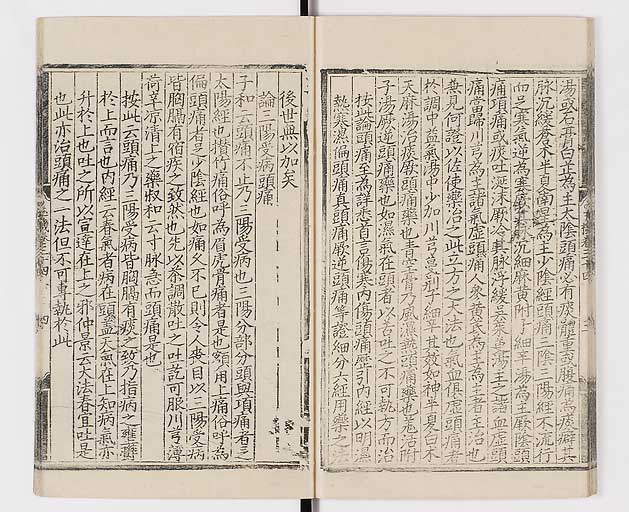 湯或石膏白芷為主太陰頭痛必有痰體重或腹痛為痰癖其
脉沉緩蒼朮半夏南星為主少陰經頭痛三陰三陽經不流行
而足寒氣逆為寒厥其脉沉細麻黄附子細辛湯為主厥陰頭
痛項痛或痰吐涎沫厥冷其脉浮緩吳茱萸湯主之諸血虛頭
痛當歸川芎為主諸氣虛頭痛人參黄芪為主為主者主治也
兼見何證以佐使藥治之此立方之大法也氣血俱虛頭痛者
於調中益氣湯中少加川芎蔓荊子細辛其效如神半夏白朮
天麻湯治痰厥頭痛藥也青空膏乃風濕熱頭痛藥也羌活附
子湯厥逆頭痛藥也如濕氣在頭者以苦吐之不可執方而治
按此論頭痛至為詳悉首言傷寒内傷頭痛歷引内經以明濕
熱寒濕偏頭痛真頭痛厥逆頭痛等證細分六經用藥之法
後世無以加矣
論三陽受病頭痛
子和云頭痛不止乃三陽受病也三陽分部分頭與項痛者足
太陽經也攢竹痛俗呼為眉稜骨痛者是也額角上痛俗呼為
偏頭痛者足少陰經也如痛久不已則令人喪目以三陽受病
皆胸膈有宿痰之致然也先以茶調散吐之吐訖可服川芎薄
荷辛凉清上之藥叔和云寸脉急而頭痛是也
按此云頭痛乃三陽受病皆胸膈有痰之致乃指病之壅鬱
於上而言也内經云春氣者病在頭蓋天氣在上知病氣亦
升於上也吐之所以宣達在上之邪仲景云大法春宜吐是
也此亦治頭痛之一法但不可專執於此